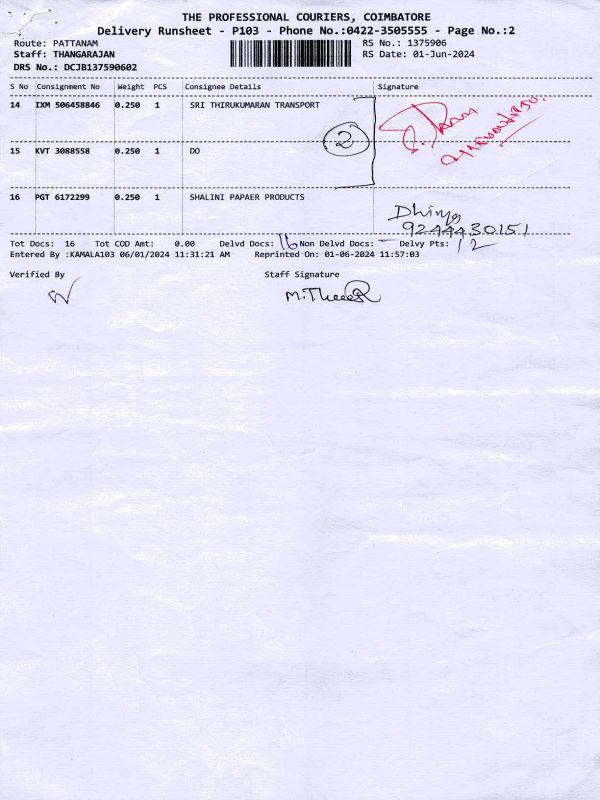 THE PROFESSIONAL COURIERS, COIMBATORE
Delivery Runsheet - P103 - Phone No.:0422-3505555 - Page No.:2
Route: PATTANAM RS No.: 1375906
Staff: THANGARAJAN RS Date: 01-Jun-2024
DRS No.: DCJB137590602
S No Consignment No Weight PCS Consignee Details Signature
14 IXM 506458846 0.250 1 SRI THIRUKUMARAN TRANSPORT
2
15 KVT 3088558 0.250 1 DO
16 PGT 6172299 0.250 1 SHALINI PAPAER PRODUCTS
Dhivya
9244430151
Tot Docs: 16 Tot COD Amt: 0.00 Delvd Docs: 16 Non Delvd Docs: - Delvy Pts: 12
Entered By :KAMALA103 06/01/2024 11:31:21 AM Reprinted On: 01-06-2024 11:57:03
Verified By Staff Signature